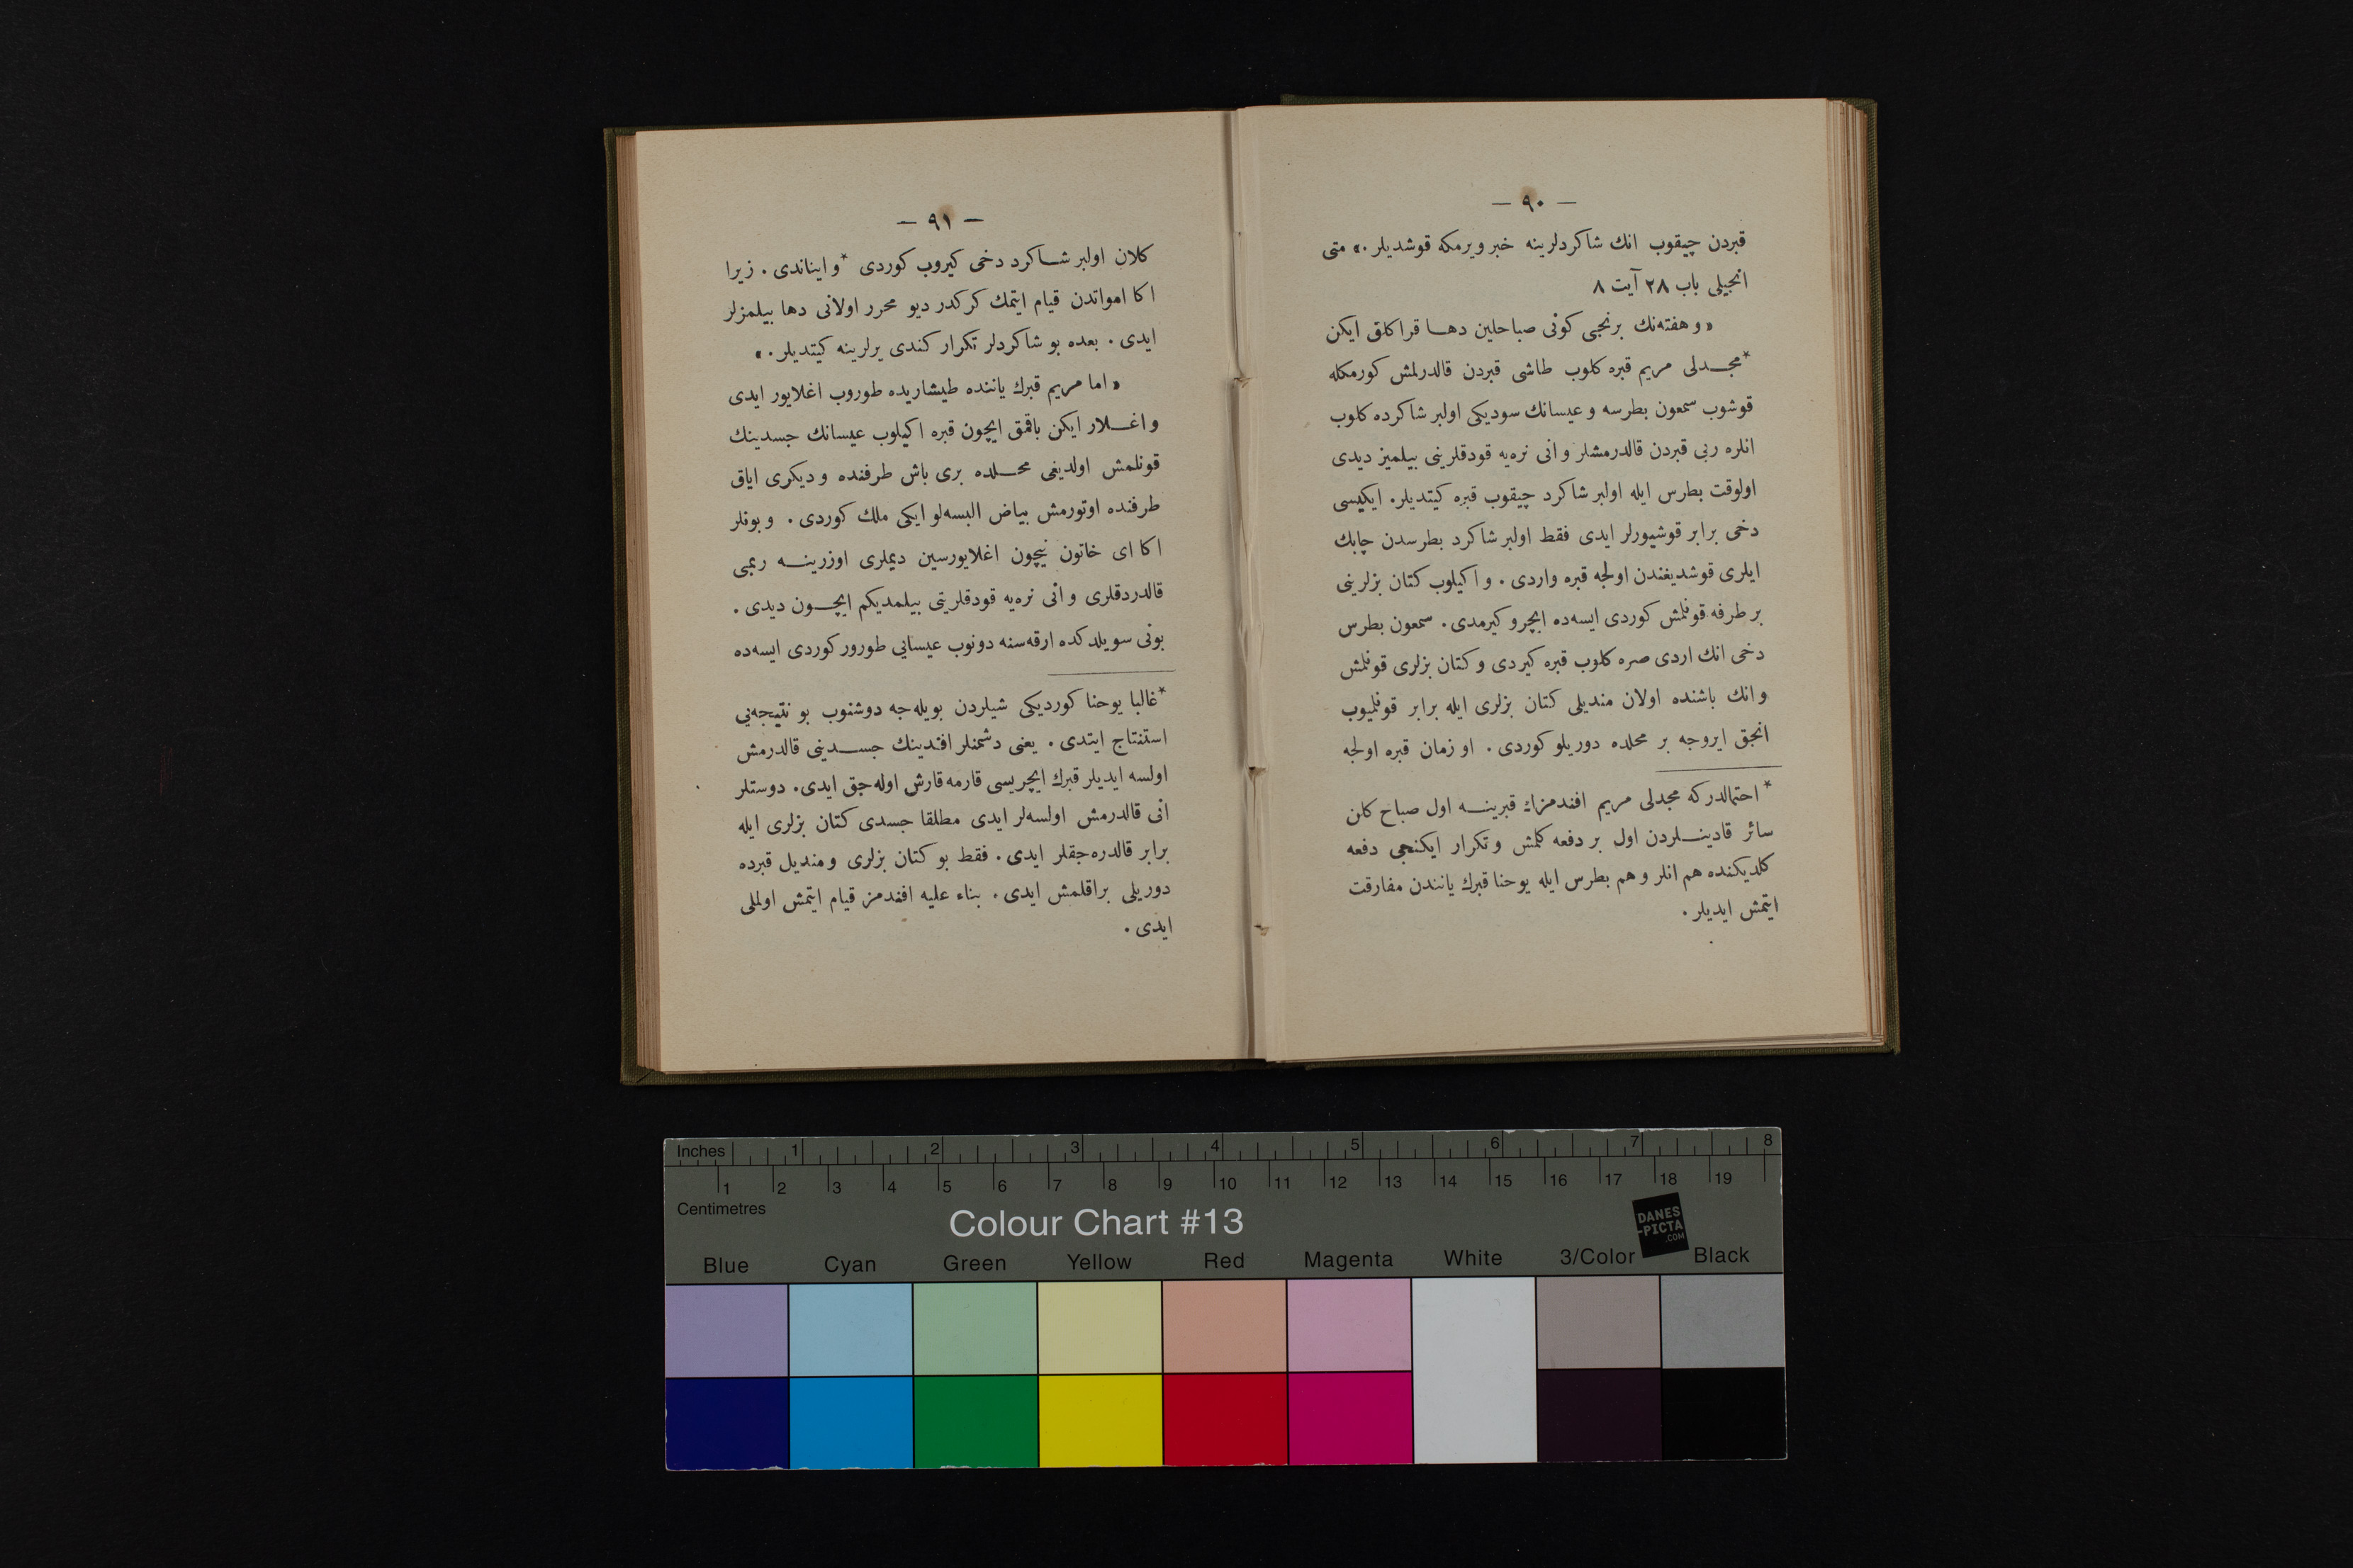 — ٩٠ —
قبردن چیقوب انك شاكردلرینه خبر ویرمكه قوشدیلر .» متی
انجیلی باب ٢٨ آیت ٨
« و هفته‌نك برنجی كونی صباحلین دهـا قراكلق ایكن
*مجـدلی مریم قبره كلوب طاشی قبردن قالدرلمش كورمكله
قوشوب سمعون بطرسه و عیسانك سودیكی اولبر شاكرده كلوب
انلره ربی قبردن قالدرمشلر و انی نره‌یه قودقلرینی بیلمیز دیدی
اولوقت بطرس ایله اولبر شاكرد چیقوب قبره كیتدیلر. ایكیسی
دخی برابر قوشیورلر ایدی فقط اولبر شاكرد بطرسدن چابك
ایلری قوشدیغندن اولجه قبره واردی . و اكیلوب كتان بزلرینی
بر طرفه قونلمش كوردی ایسه‌ده ایچرو كیرمدی . سمعون بطرس
دخی انك اردی صره كلوب قبره كیردی و كتان بزلری قونلمش
و انك باشنده اولان مندیلی كتان بزلری ایله برابر قونلمیوب
انجق ایروجه بر محلده دوریلو كوردی . او زمان قبره اولجه
* احتمالدركه مجدلی مریم افندمزك قبرینـه اول صباح كلن
سائر قادینـلردن اول بر دفعه كلمش و تكرار ایكنجی دفعه
كلدیكنده هم انلر و هم بطرس ایله یوحنا قبرك یانندن مفارقت
ایتمش ایدیلر .
— ٩١ —
كلان اولبر شـاكرد دخی كیروب كوردی *و ایناندی . زیرا
اكا امواتدن قیام ایتمك كركدر دیو محرر اولانی دها بیلمزلر
ایدی . بعده بو شاكردلر تكرار كندی یرلرینه كیتدیلر .»
« اما مریم قبرك یاننده طیشاریده طوروب اغلایور ایدی
و اغـلار ایكن باقمق ایچون قبره اكیلوب عیسانك جسدینك
قونلمش اولدیغی محـلده بری باش طرفنده و دیكری ایاق
طرفنده اوتورمش بیاض البسه‌لو ایكی ملك كوردی . و بونلر
اكا ای خاتون نیچون اغلایورسین دیملری اوزرینـه ربمی
قالدردقلری و انی نره‌یه قودقلریتی بیلمدیكم ایچـون دیدی .
بونی سویلدكده ارقه‌سنه دونوب عیسایی طورور كوردی ایسه‌ده
*غالبا یوحنا كوردیكی شیلردن بویله‌جه دوشنوب بو نتیجه‌یی
استنتاج ایتدی . یعنی دشمنلر افندینك جسـدینی قالدرمش
اولسه ایدیلر قبرك ایچریسی قارمه قارش اوله‌جق ایدی. دوستلر
انی قالدرمش اولسه‌لر ایدی مطلقا جسدی كتان بزلری ایله
برابر قالدره‌جقلر ایدی . فقط بو كتان بزلری و مندیل قبرده
دوریلی براقلمش ایدی . بناء علیه افندمز قیام ایتمش اولملی
ایدی .
Inches 1 2 3 4 5 6 7 8
1 2 3 4 5 6 7 8 9 10 11 12 13 14 15 16 17 18 19
Centimetres
Colour Chart #13
DANES
-PICTA
.COM
Blue Cyan Green Yellow Red Magenta White 3/Color Black